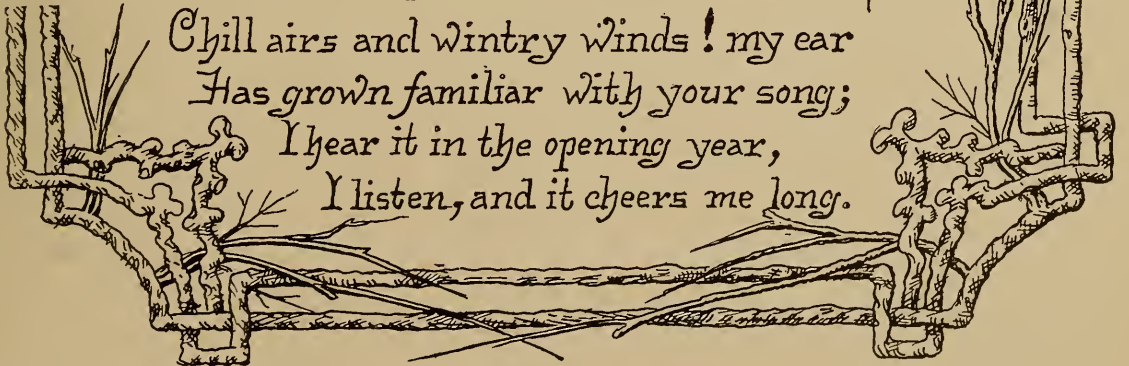 Chill airs and wintry winds! my ear
Has grown familiar with your song;
I hear it in the opening year,
I listen, and it cheers me long.